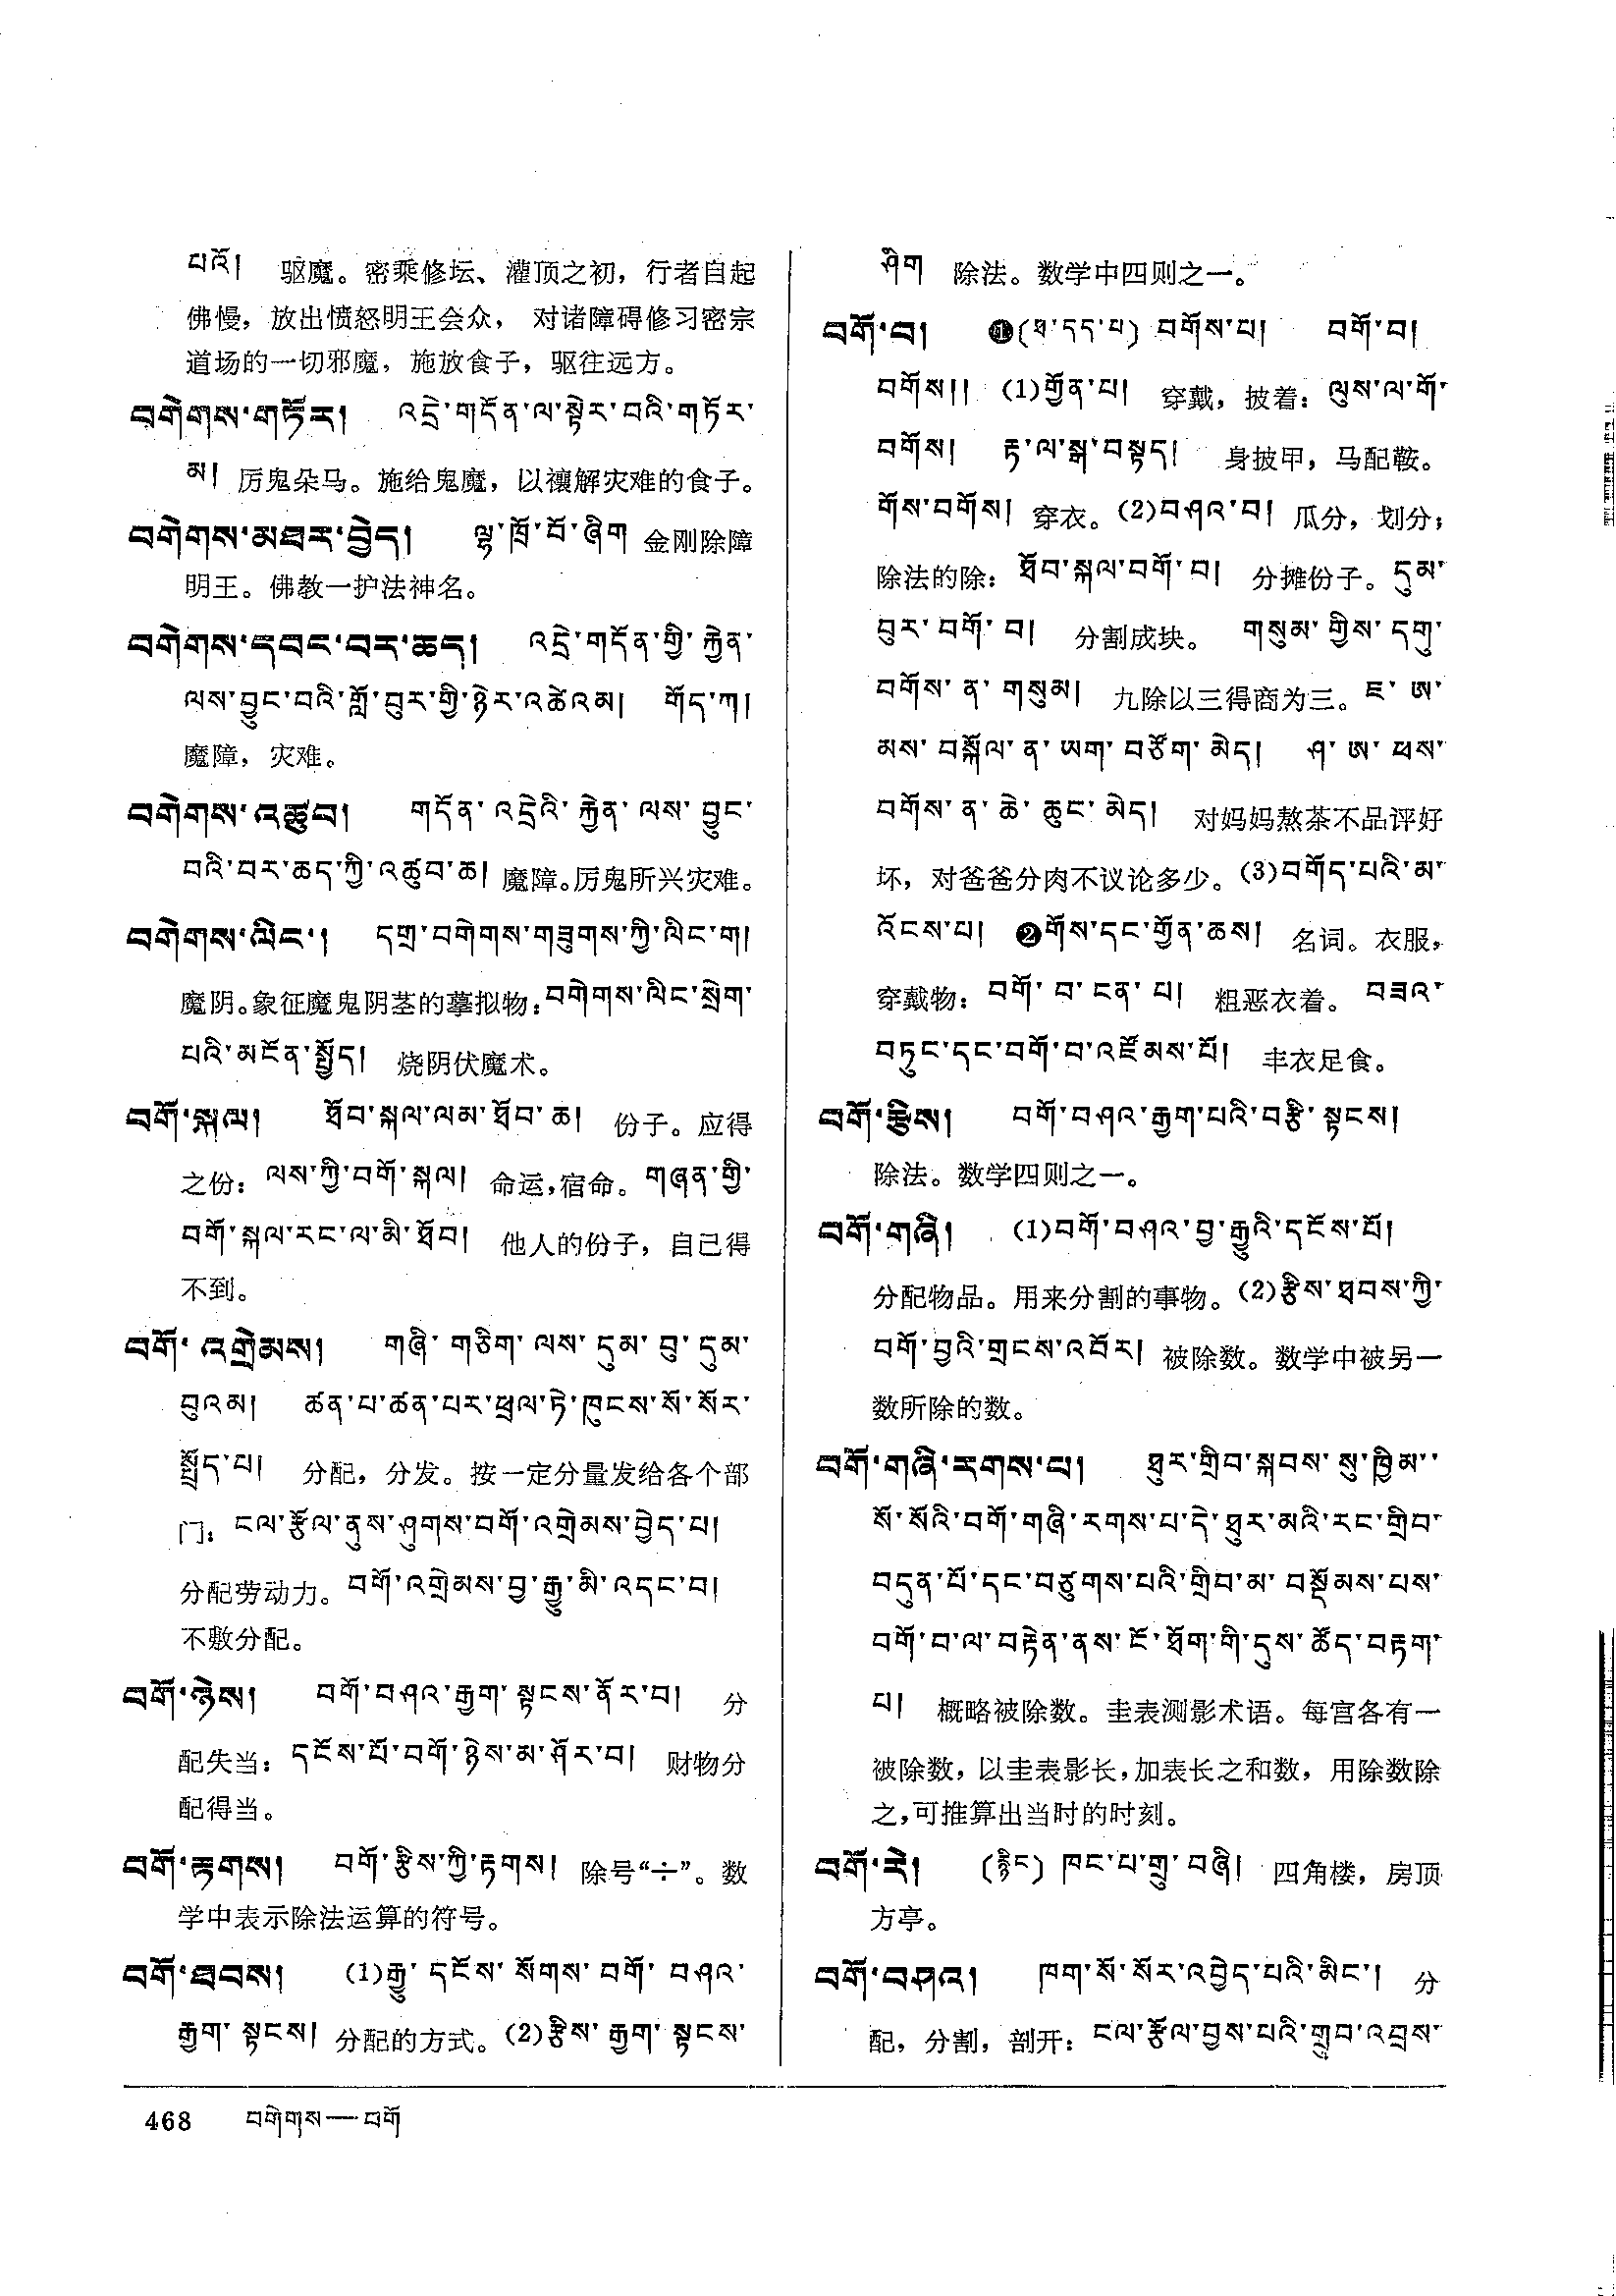 པའོ། 驱魔。密乘修坛、灌顶之初，行者自起
佛慢，放出愤怒明王会众， 对诸障碍修习密宗
道场的一切邪魔，施放食子，驱往远方。
བགེགས་གཏོར། འདྲེ་གདོན་ལ་སྟེར་བའི་གཏོར་
མ། 厉鬼朵马。施给鬼魔，以禳解灾难的食子。
བགེགས་མཐར་བྱེད། ལྷ་ཁྲོ་བོ་ཞིག 金刚除障
明王。佛教一护法神名。
བགེགས་དབང་བར་ཆད། འདྲེ་གདོན་གྱི་རྐྱེན་
ལས་བྱུང་བའི་གློ་བུར་གྱི་ཉེར་འཚེའམ། གོད་ཀ།
魔障，灾难。
བགེགས་འཚུབ། གདོན་འདྲེའི་རྐྱེན་ལས་བྱུང་
བའི་བར་ཆད་ཀྱི་འཚུབ་ཆ། 魔障。厉鬼所兴灾难。
བགེགས་ལིང་། དགྲ་བགེགས་གཟུགས་ཀྱི་ལིང་ག།
魔阴。象征魔鬼阴茎的摹拟物：བགེགས་ལིང་སྲེག་
པའི་མངོན་སྤྱོད། 烧阴伏魔术。
བགོ་སྐལ། ཐོབ་སྐལ་ལམ་ཐོབ་ཆ། 份子。应得
之份：ལས་ཀྱི་བགོ་སྐལ། 命运，宿命。གཞན་གྱི་
བགོ་སྐལ་རང་ལ་མི་ཐོབ། 他人的份子，自己得
不到。
བགོ་འགྲེམས། གཞི་གཅིག་ལས་དུམ་བུ་དུམ་
བུའམ། ཚན་པ་ཚན་པར་ཕྲལ་ཏེ་ཁུངས་སོ་སོར་
སྤྲོད་པ། 分配，分发。按一定分量发给各个部
门：ངལ་རྩོལ་ནུས་ཤུགས་བགོ་འགྲེམས་བྱེད་པ།
分配劳动力。བགོ་འགྲེམས་བྱ་རྒྱུ་མི་འདང་བ།
不敷分配。
བགོ་ཉེས། བགོ་བཤའ་རྒྱག་སྟངས་ནོར་བ། 分
配失当：དངོས་པོ་བགོ་ཉེས་མ་ཤོར་བ། 财物分
配得当。
བགོ་རྟགས། བགོ་རྩིས་ཀྱི་རྟགས། 除号“÷”。数
学中表示除法运算的符号。
བགོ་ཐབས། (1)རྒྱུ་དངོས་སོགས་བགོ་བཤའ་
རྒྱག་སྟངས། 分配的方式。(2)རྩིས་རྒྱག་སྟངས་
ཤིག 除法。数学中四则之一。
བགོ་བ། ❶(ཐ་དད་པ) བགོས་པ། བགོ་བ།
བགོས།། (1)གྱོན་པ། 穿戴，披着：ལུས་ལ་གོ་
བགོས། རྟ་ལ་སྒ་བསྟད། 身披甲，马配鞍。
གོས་བགོས། 穿衣。(2)བཤའ་བ། 瓜分，划分；
除法的除：ཐོབ་སྐལ་བགོ་བ། 分摊份子。དུམ་
བུར་བགོ་བ། 分割成块。 གསུམ་གྱིས་དགུ་
བགོས་ན་གསུམ། 九除以三得商为三。ཇ་ཨ་
མས་བསྐོལ་ན་ཡག་བཙོག་མེད། ཤ་ཨ་ཕས་
བགོས་ན་ཆེ་ཆུང་མེད། 对妈妈熬茶不品评好
坏，对爸爸分肉不议论多少。(3)བགོད་པའི་མ་
འོངས་པ། ❷གོས་དང་གྱོན་ཆས། 名词。衣服，
穿戴物：བགོ་བ་ངན་པ། 粗恶衣着。 བཟའ་
བཏུང་དང་བགོ་བ་འཛོམས་པོ། 丰衣足食。
བགོ་རྩིས། བགོ་བཤའ་རྒྱག་པའི་བརྩི་སྟངས།
除法。数学四则之一。
བགོ་གཞི། (1)བགོ་བཤའ་བྱ་རྒྱུའི་དངོས་པོ།
分配物品。用来分割的事物。(2)རྩིས་ཐབས་ཀྱི་
བགོ་བྱའི་གྲངས་འབོར། 被除数。数学中被另一
数所除的数。
བགོ་གཞི་རགས་པ། ཐུར་གྲིབ་སྐབས་སུ་ཁྱིམ་་
སོ་སོའི་བགོ་གཞི་རགས་པ་དེ་ཐུར་མའི་རང་གྲིབ་
བདུན་པོ་དང་བཙུགས་པའི་གྲིབ་མ་བསྡོམས་པས་
བགོ་བ་ལ་བརྟེན་ནས་ངོ་ཐོག་གི་དུས་ཚོད་བརྟག་
པ། 概略被除数。圭表测影术语。每宫各有一
被除数，以圭表影长，加表长之和数，用除数除
之，可推算出当时的时刻。
བགོ་རེ། (རྙིང) ཁང་པ་གྲུ་བཞི། 四角楼，房顶
方亭。
བགོ་བཤའ། ཁག་སོ་སོར་འབྱེད་པའི་མིང་། 分
配，分割，剖开：ངལ་རྩོལ་བྱས་པའི་གྲུབ་འབྲས་
468 བགེགས—བགོ